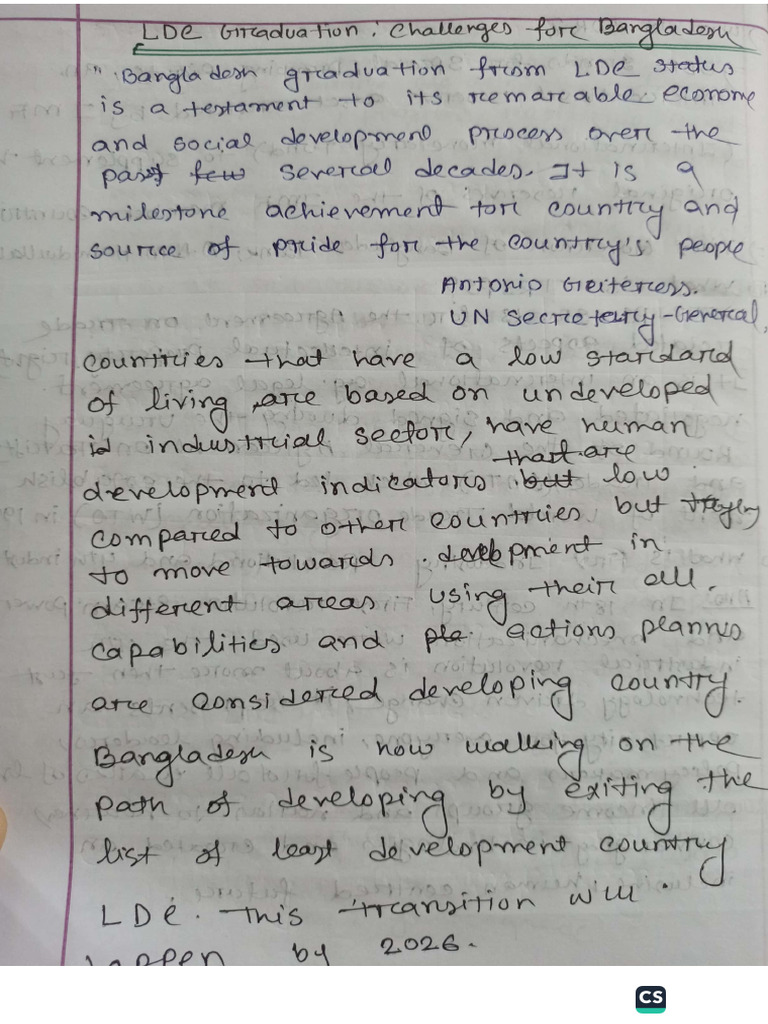 LDC Graduation: Challenges for Bangladesh
"Bangladesh graduation from LDC status
is a testament to its remarcable econome
and social development process over the
past few several decades. It is a
milestone achievement for country and
source of pride for the country's people
Antonio Guterress.
UN Secretery-General,
countries that have a low standard
of living, are based on undeveloped
id industrial sector, have human
that are
development indicators but low
compared to other countries but trying
to move towards development in
different areas using their all
capabilities and pla. actions planns
are considered developing country.
Bangladesh is now walking on the
path of developing by exiting the
list of least development country
LDC. This transition will
happen by 2026.
CS